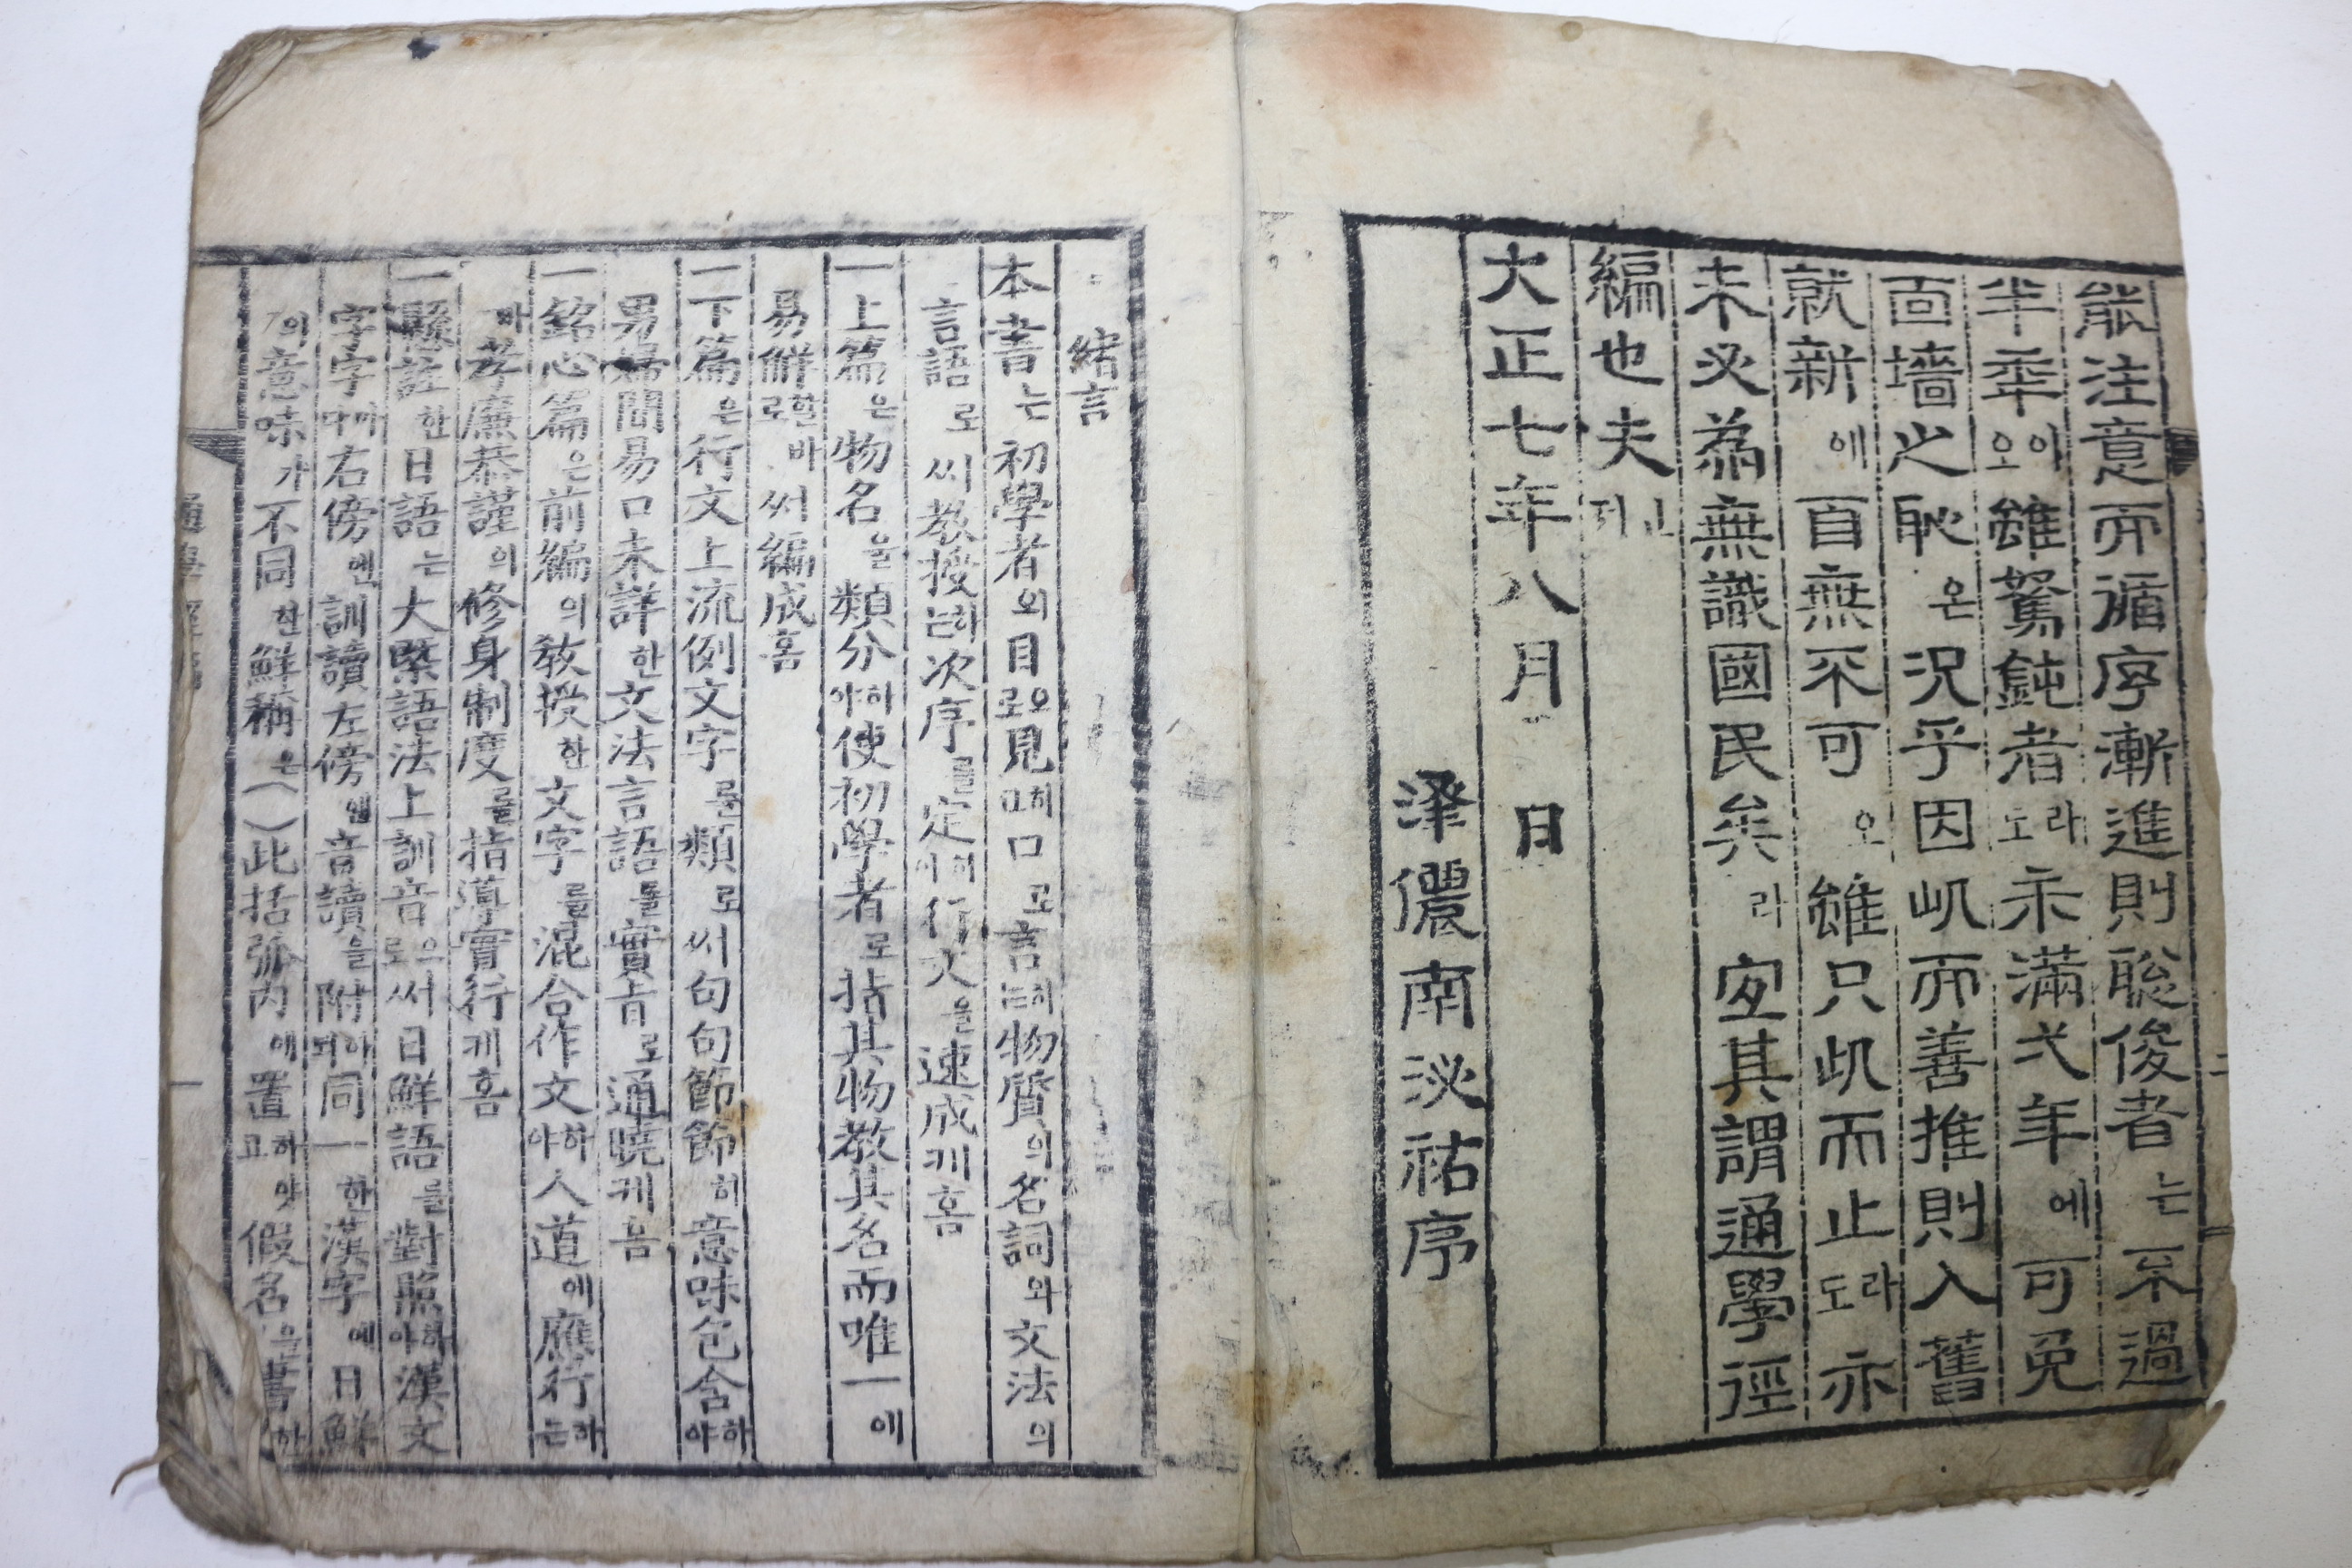 能注意而循序漸進則聡俊者는不過
半年이오雖駑鈍者라도未滿弍年에可免
面墻之恥온況乎因此而善推則入舊
就新에自無不可오雖只此而止라도亦
未必為無識國民矣라宐其謂通學徑
編也夫닌저
大正七年八月 日
澤儂南泌祐序
緒言
本書는初學者의目으로見히며口로言하는物質의名詞와文法의
言語로써教授하는次序를定하야行文을速成케홈
一上篇은物名을類分하야使初學者로指其物教其名而唯一에
易鮮할바로써編成홈
一下篇은行文上流例文字를類로써句句節節히意味包含하야
男婦間易口未詳한文法言語를實旨로通曉케홈
一銘心篇은前編의敎授한文字를混合作文하야人道에應行하는
바孝廉恭謹의修身制度를指導實行케홈
一懸註한日語는大槩語法上訓音으로써日鮮語를對照하야漢文
字字마다右傍엔訓讀左傍엔音讀을附하되同一한漢字에日鮮
의意味가不同한鮮稱은( )此括弧內에置하고얏假名을書한